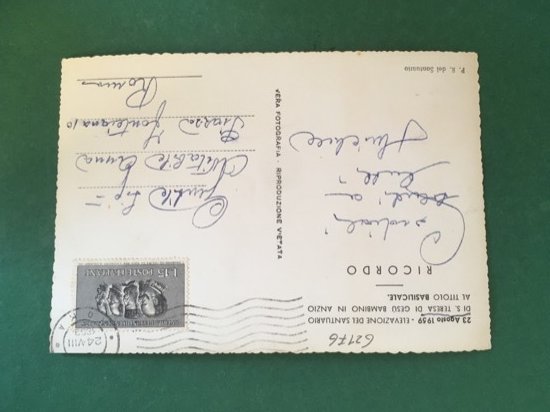 23 Agosto 1959 - ELEVAZIONE DEL SANTUARIO
DI S. TERESA DI GESÙ BAMBINO IN ANZIO
AL TITOLO BASILICALE.
RICORDO
Cordiali
saluti a
tutti
P. R. del Santuario
VERA FOTOGRAFIA - RIPRODUZIONE VIETATA
L.15 POSTE ITALIANE
24.VIII
Gentile Sig.
Anna
Piazza
Roma
62176